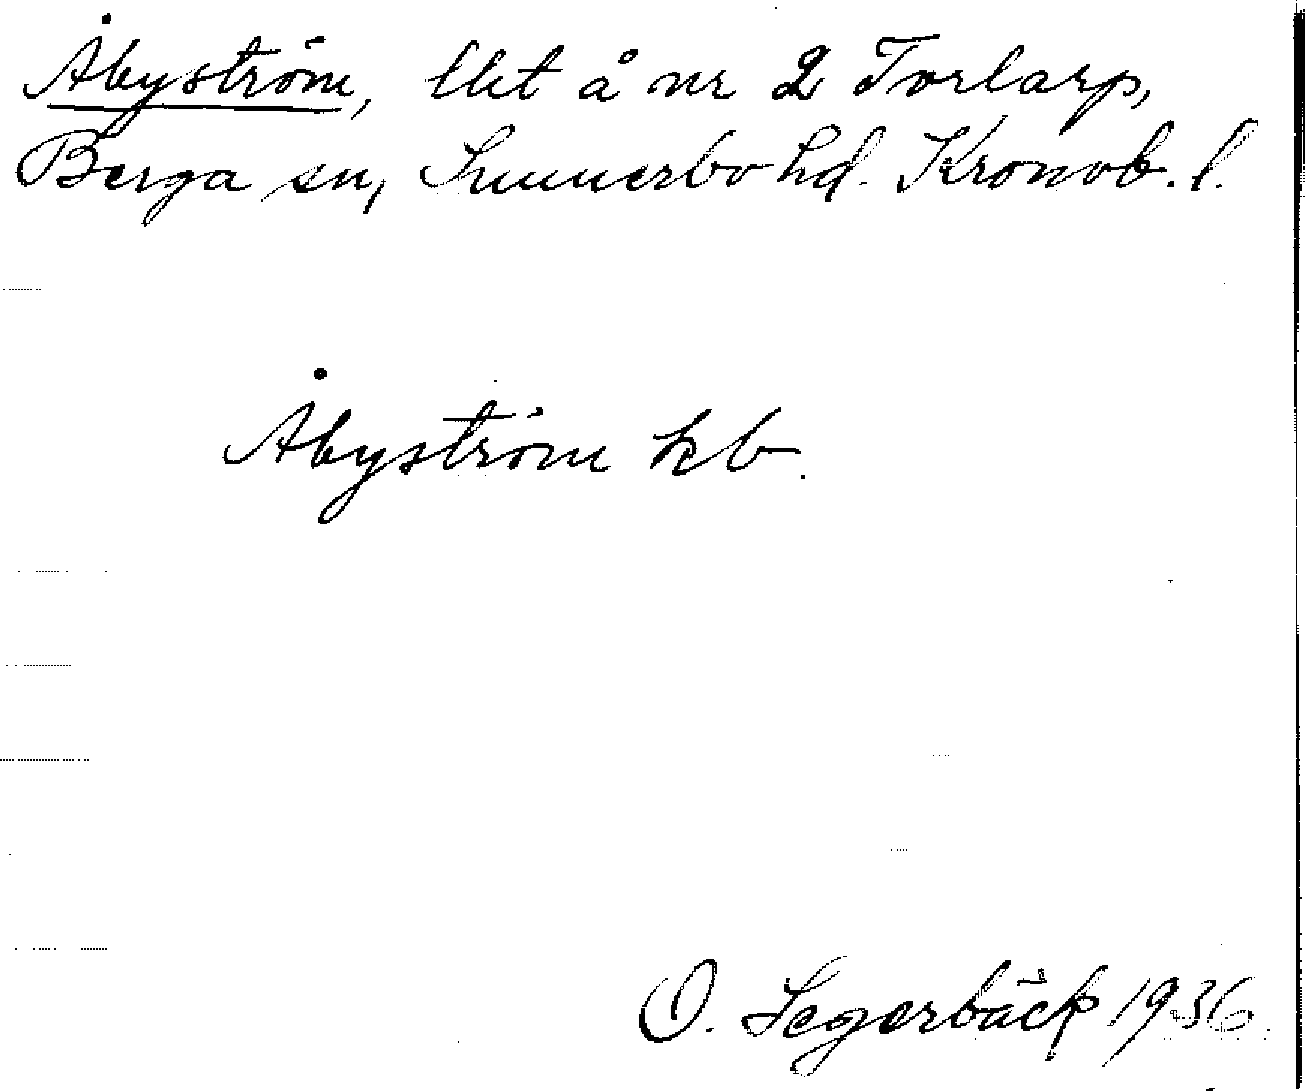 Åbyström, lht å nr 2 Torlarp,
Berga sn, Sunnerbo hd. Kronob. l.
Åbyström kb.
O. Segerbäck 1936.